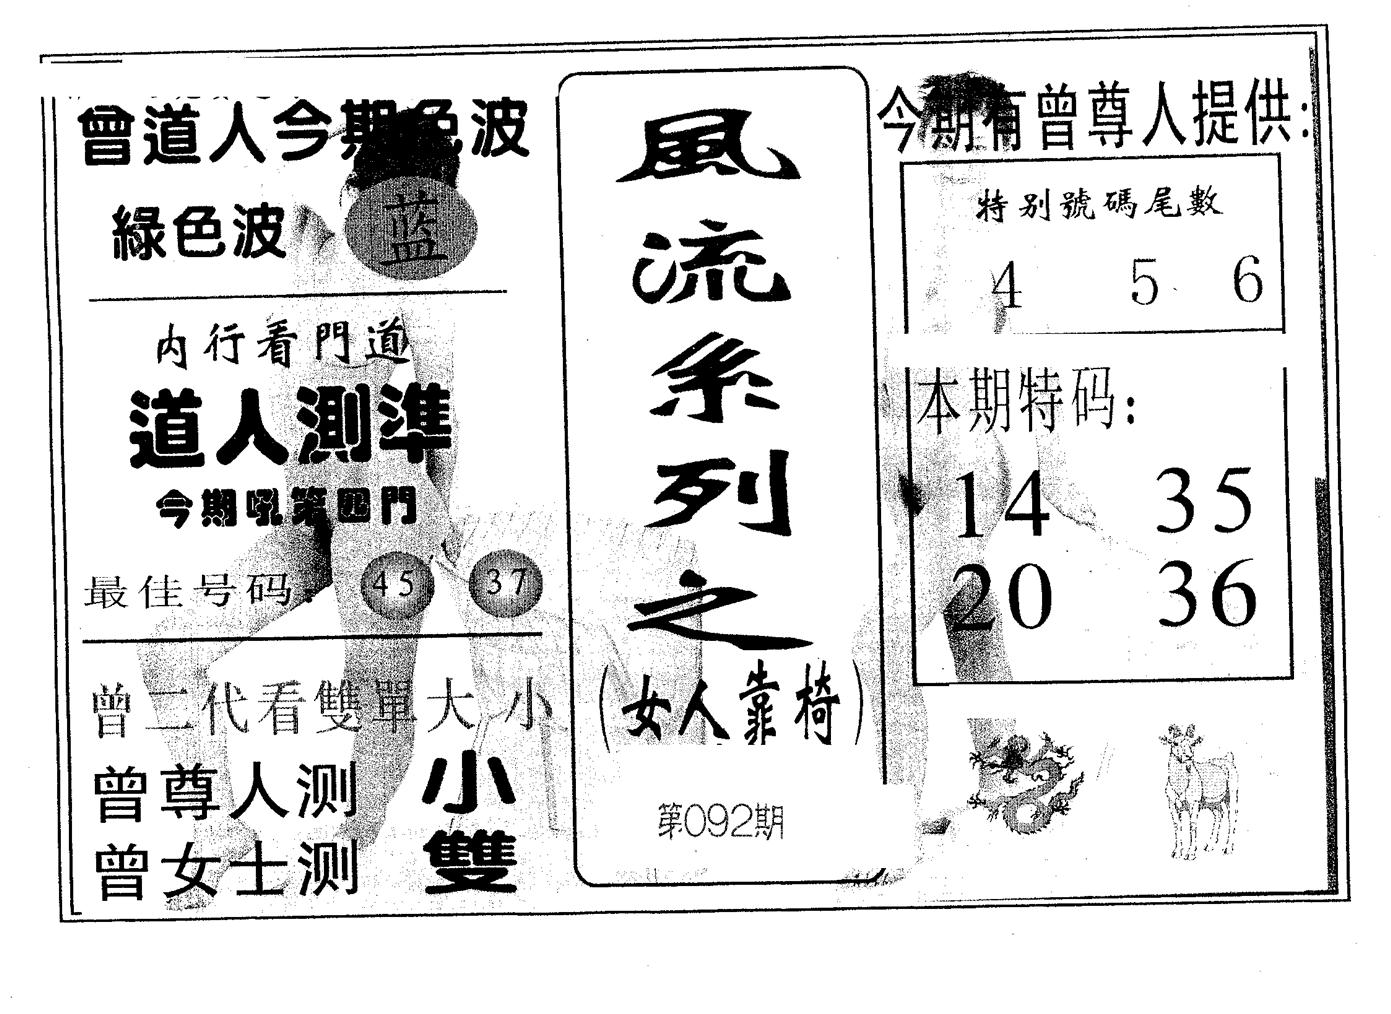 曾道人今期色波
綠色波 蓝
内行看門道
道人測準
今期吼第四門
最佳号码: 45 37
曾二代看雙單大小
曾尊人测 小
曾女士测 雙
風流系列之
(女人靠椅)
第092期
今期有曾尊人提供:
特别號碼尾數
4 5 6
本期特码:
14 35
20 36